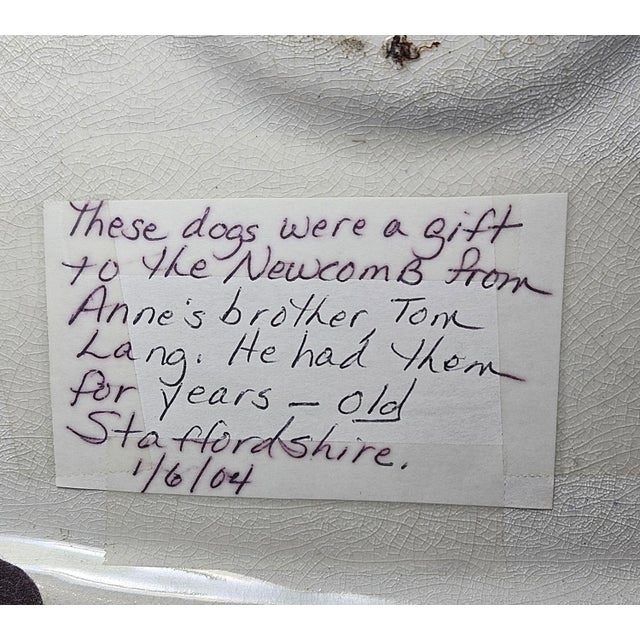 These dogs were a gift
to the Newcomb from
Anne's brother, Tom
Lang. He had them
for years – old
Staffordshire.
1/6/04